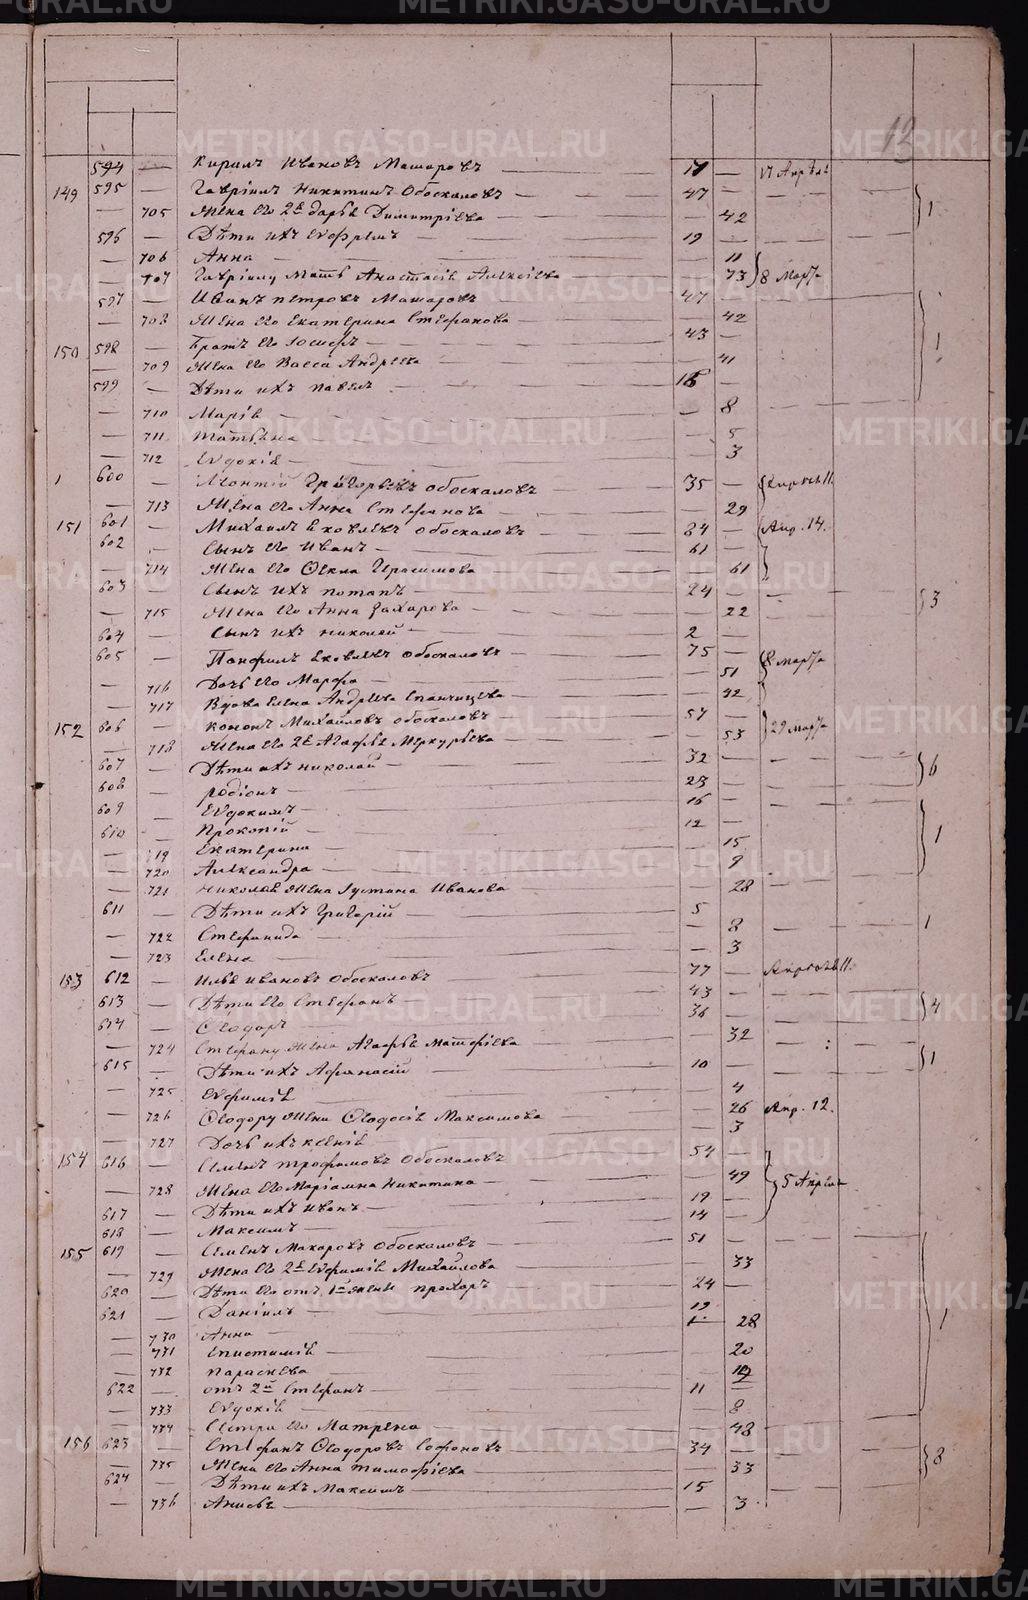 METRIKI.GASO-URAL.RU
13
594 — Кирилъ Ивановъ Машаровъ — 17 — 17 Апрѣля
149 595 — Гавріилъ Никитинъ Обоскаловъ — 47 —
— 705 Жена его 2я Дарья Димитріева — 42 1
596 — Дѣти ихъ Ефремъ — 19 —
— 706 Анна — 11
— 707 Гавріилу Мать Анастасія Алексіева — 73 8 Марта
597 — Иванъ Петровъ Машаровъ — 47 —
— 708 Жена его Екатерина Стефанова — 42 1
150 598 — Братъ его Іосифъ — 43 —
— 709 Жена его Васса Андреева — 41
599 — Дѣти ихъ Павелъ —
— 710 Марія — 8
— 711 Татьяна — 5
— 712 Евдокія — 3
600 — Леонтій Григорьевъ Обоскаловъ — 35 —
— 713 Жена его Анна Стефанова — 29
151 601 — Михаилъ Яковлевъ Обоскаловъ — 84 — Апр. 14.
602 — Сынъ его Иванъ — 61 —
— 714 Жена его Фекла Герасимова — 61
603 — Сынъ ихъ Потапъ — 24 — 3
— 715 Жена его Анна Захарова — 22
604 — Сынъ ихъ Николай — 2 —
605 — Панфилъ Яковлевъ Обоскаловъ — 75 — 8 Марта
— 716 Дочь его Марфа — 51
— 717 Вдова Елена Андреева — 42
152 606 — Кононъ Михайловъ Обоскаловъ — 57 — 29 Марта
— 718 Жена его 2я Агафья Меркурьева — 53
607 — Дѣти ихъ Николай — 32 — 6
608 — Родіонъ — 23 —
609 — Евдокимъ — 16 —
610 — Прокопій — 12 — 1
— 719 Екатерина — 15
— 720 Александра — 9
— 721 Николая Жена Іустина Иванова — 28
611 — Дѣти ихъ Григорій — 5 — 1
— 722 Стефанида — 8
— 723 Елена — 3
153 612 — Илья Ивановъ Обоскаловъ — 77 — Апрѣль 11.
613 — Дѣти его Стефанъ — 43 — 4
614 — Ѳеодоръ — 36 —
— 724 Стефану Жена Агафья Матфіева — 32
615 — Дѣти ихъ Афанасій — 10 — 1
— 725 Евфимія — 4
— 726 Ѳеодору Жена Ѳеодосія Максимова — 26 Апр. 12.
— 727 Дочь ихъ Ксенія — 3
154 616 — Семенъ Трофимовъ Обоскаловъ — 54 —
— 728 Жена его Маріамна Никитина — 49 5 Апрѣля
617 — Дѣти ихъ Иванъ — 19 —
618 — Максимъ — 14 —
155 619 — Семенъ Макаровъ Обоскаловъ — 51 —
— 729 Жена его 2я Евфимія Михайлова — 33
620 — Дѣти его отъ 1й жены Прохоръ — 24 —
621 — Даніилъ — 19 1
— 730 Анна — 28
— 731 Епистимія — 20
— 732 Параскева —
622 — отъ 2й Стефанъ — 11 —
— 733 Евдокія — 8
— 734 Сестра его Матрена — 48
156 623 — Стефанъ Ѳеодоровъ Софоновъ — 34 —
— 735 Жена его Анна Тимофіева — 33 8
624 — Дѣти ихъ Максимъ — 15 —
— 736 Анисья — 3